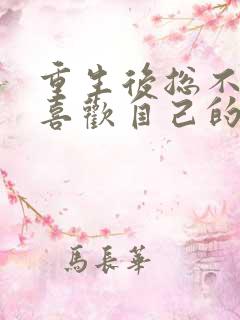 重生後捴不
喜歡自己的
馬長華